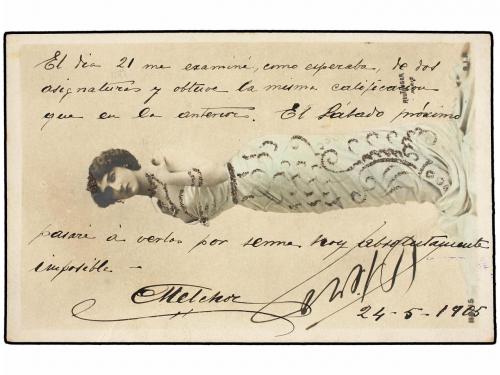 El dia 21 me examiné, como esperaba, de dos
asignaturas y obtuve la misma calificacion
que en la anterior. El Sábado próximo
pasaré á verlas por serme hoy absolutamente
imposible -
Melchor
24-5-1905